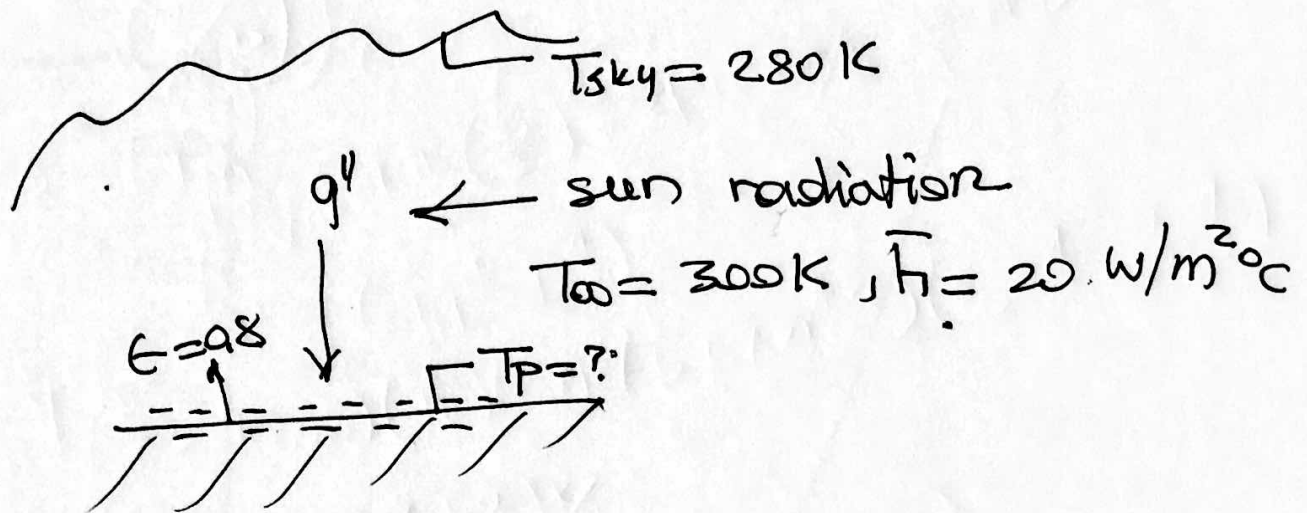 Tsky = 280 K
q" ← sun radiation
T∞ = 300K , h̄ = 20 W/m²°C
ϵ = 0.8
Tp = ?